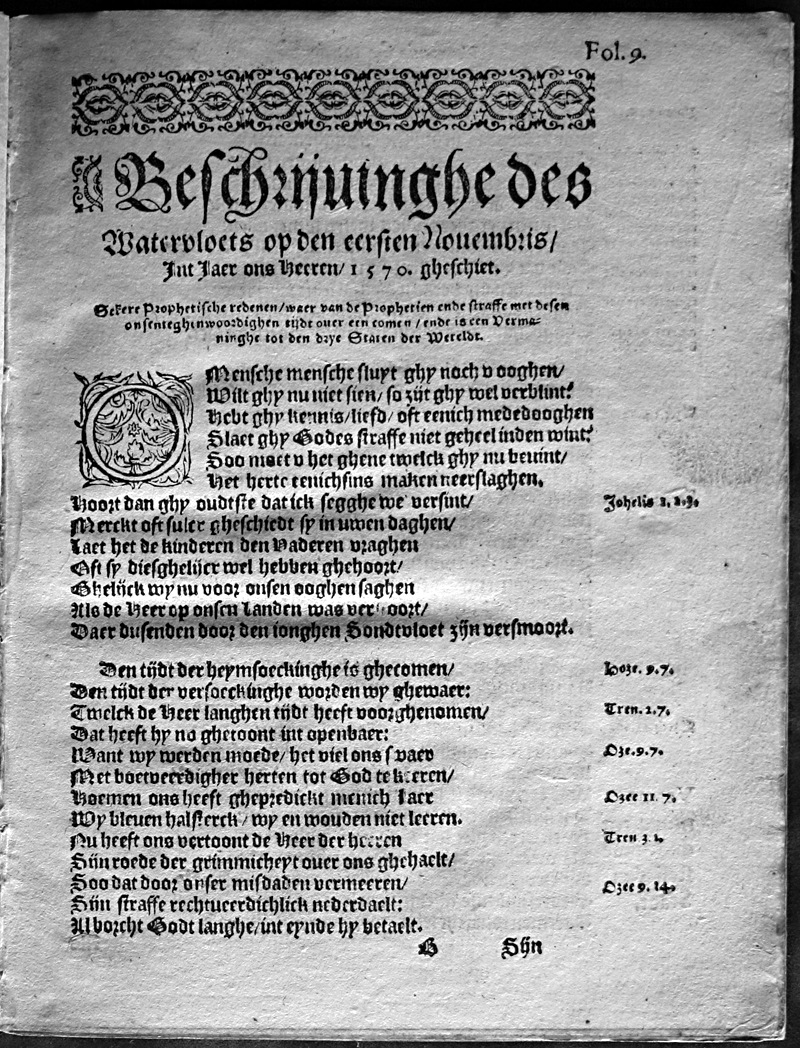 Fol. 9.
Beschrijuinghe des
Watervloets op den eersten Nouembris/
Int Jaer ons Heeren/ 1570. gheschiet.
Sekere Prophetische redenen/waer van de Prophetien ende straffe met desen
onsenteghenwoordighen tijdt ouer een comen/ ende is een Verma-
ninghe tot den drye Staten der Wereldt.
O Mensche mensche sluyt ghy noch v ooghen/
Wilt ghy nu niet sien/ so zijt ghy wel verblint?
Hebt ghy kennis/ liefd/ oft eenich mededooghen
Slaet ghy Godes straffe niet geheel inden wint?
Soo moet v het ghene twelck ghy nu beuint/
Het herte eenichsins maken neerslaghen.
Hoort dan ghy oudtste dat ick segghe we versint/ Johelis 1. 2.3.
Merckt oft sulcx gheschiedt sy in uwen daghen/
Laet het de kinderen den Vaderen vraghen
Oft sy diesghelijcx wel hebben ghehoort/
Ghelijck wy nu voor onsen ooghen saghen
Als de Heer op onsen Landen was verstoort/
Daer dusenden door den ionghen Sondtvloet zijn versmoort.
Den tijdt der heymsoeckinghe is ghecomen/ Hoze. 9.7.
Den tijdt der versoeckinghe worden wy ghewaer:
Twelck de Heer langhen tijdt heeft voorghenomen/ Tren. 2.7.
Dat heeft hy no ghetoont int openbaer:
Want wy werden moede/ het viel ons swaer Oze.9.7.
Met boetveerdigher herten tot God te keeren/
Hoemen ons heeft ghepredickt menich Jaer Ozee 11. 7.
Wy bleuen halsterck/ wy en wouden niet leeren.
Nu heeft ons vertoont de Heer der heeren Tren 3. 1.
Sijn roede der grimmicheyt ouer ons ghehaelt/
Soo dat door onser misdaden vermeeren/ Ozee 9. 14.
Sijn straffe rechtueerdichlick nederdaelt:
Al borcht Godt langhe/int eynde hy betaelt.
B Sijn